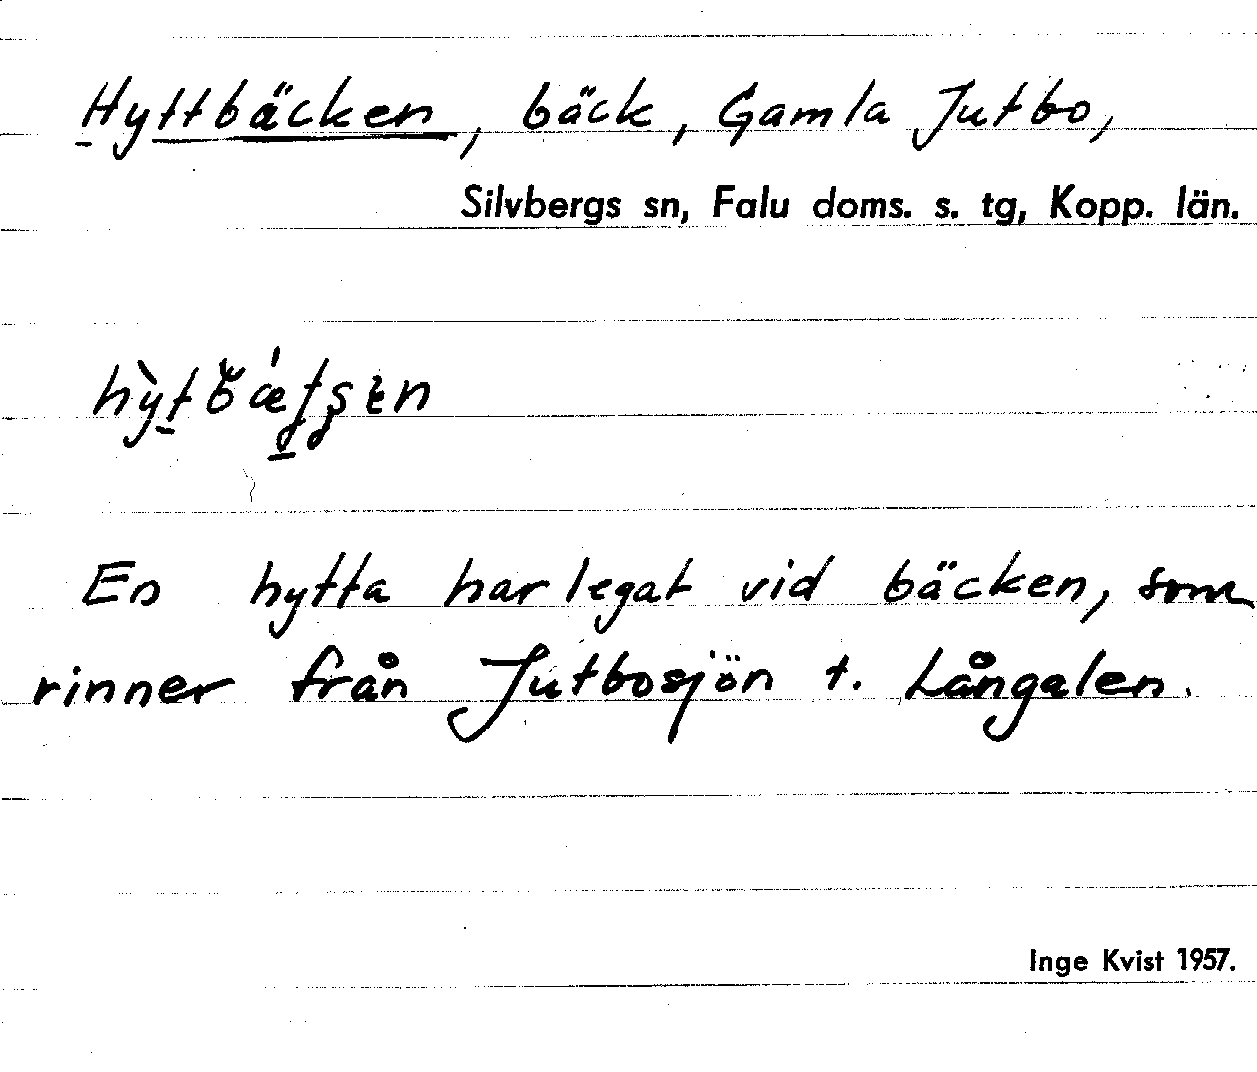 Hyttbäcken, bäck, Gamla Jutbo,
Silvbergs sn, Falu doms. s. tg, Kopp. län.
En hytta har legat vid bäcken, som
rinner från Jutbosjön t. Långalen.
Inge Kvist 1957.